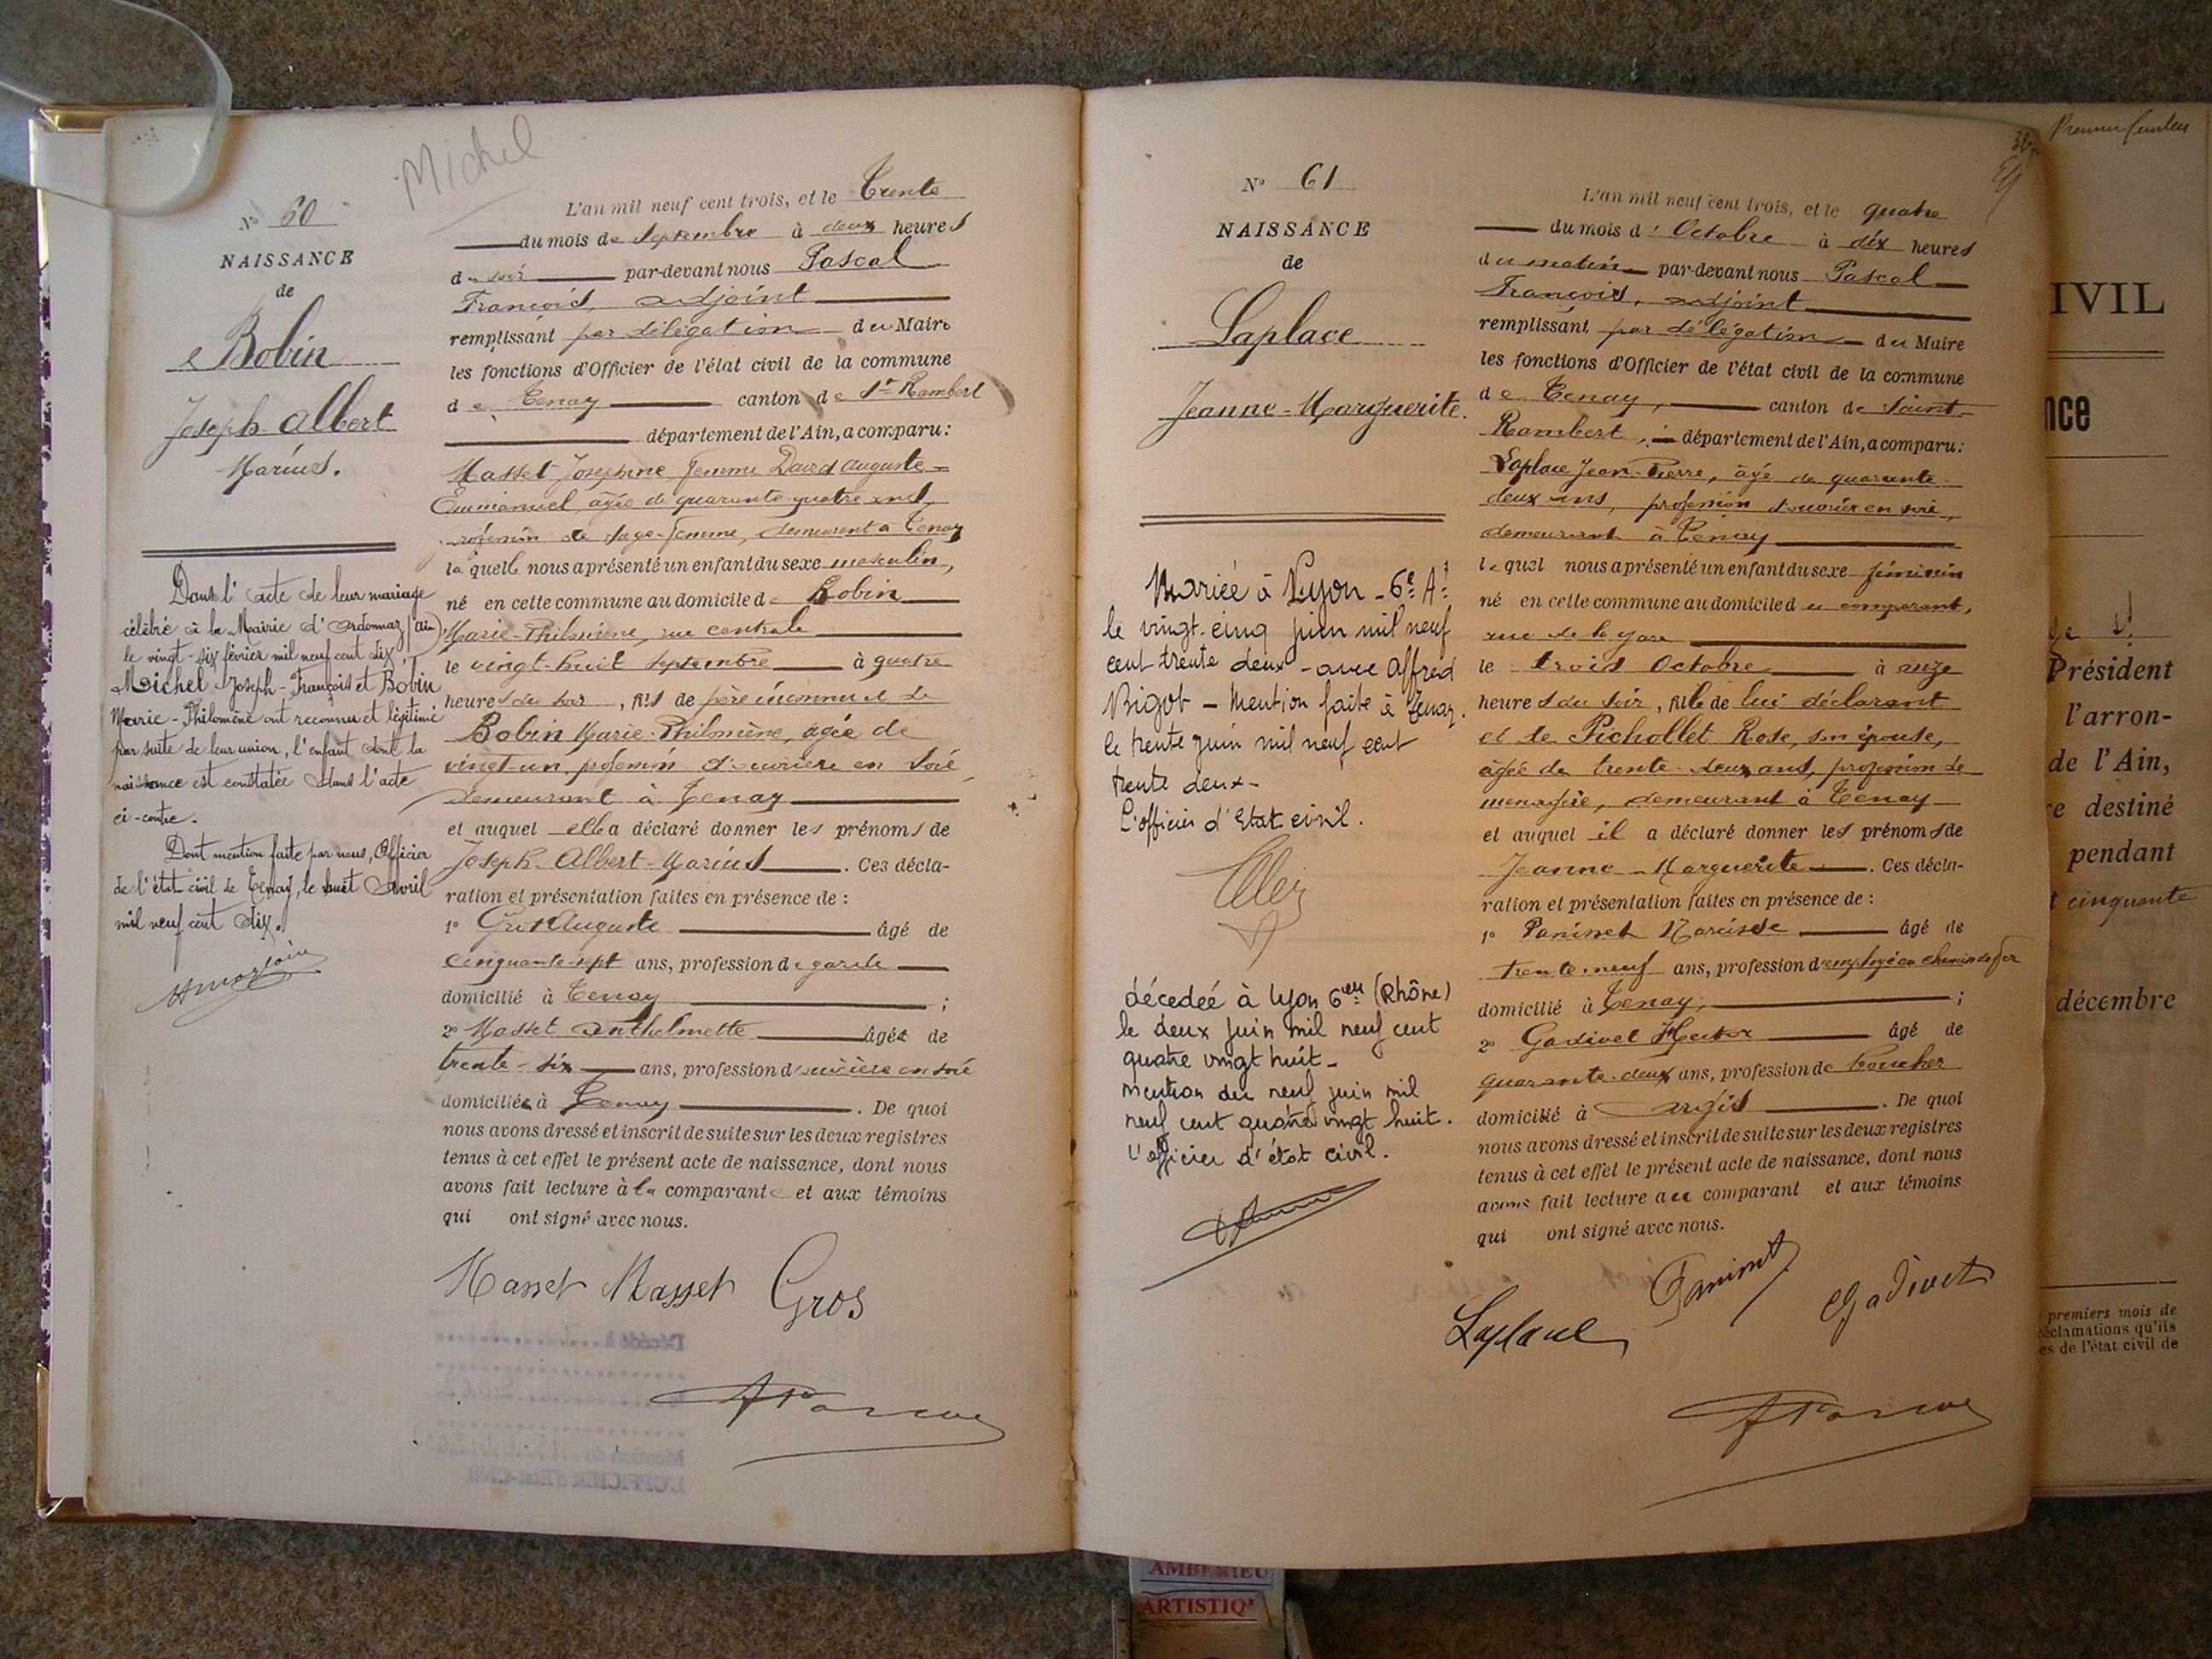 Michel
N° 60
NAISSANCE
de
Bobin
Joseph Albert
Marius.
Dans l'acte de leur mariage
célébré à la Mairie d'Ordonnaz (Ain)
le vingt-six février mil neuf cent dix,
Michel Joseph-François et Bobin
Marie-Philomène ont reconnu et légitimé
par suite de leur union, l'enfant dont la
naissance est constatée dans l'acte
ci-contre.
Dont mention faite par nous, Officier
de l'état civil de Tenay, le huit Avril
mil neuf cent dix.
L'an mil neuf cent trois, et le Trente
du mois de Septembre à deux heures
du soir par-devant nous Pascal
François, adjoint
remplissant par délégation du Maire
les fonctions d'Officier de l'état civil de la commune
de Tenay canton de St Rambert
département de l'Ain, a comparu:
Masset Josephine femme David Auguste
Emmanuel, âgée de quarante quatre ans,
profession de sage-femme, demeurant à Tenay
laquelle nous a présenté un enfant du sexe masculin,
né en cette commune au domicile de Bobin
Marie-Philomène, rue centrale
le vingt-huit septembre à quatre
heures du soir, fils de père inconnu et de
Bobin Marie-Philomène, agée de
vingt-un, profession d'ouvrière en soie,
demeurant à Tenay
et auquel elle a déclaré donner les prénoms de
Joseph-Albert-Marius. Ces décla-
ration et présentation faites en présence de :
1° Gros Auguste âgé de
cinquante-sept ans, profession de garde
domicilié à Tenay ;
2° Masset Anthelmette âgée de
trente-six ans, profession d'ouvrière en soie
domiciliée à Tenay. De quoi
nous avons dressé et inscrit de suite sur les deux registres
tenus à cet effet le présent acte de naissance, dont nous
avons fait lecture à la comparante et aux témoins
qui ont signé avec nous.
Masset Masset Gros
N° 61
NAISSANCE
de
Laplace
Jeanne-Marguerite.
Mariée à Lyon-6e At
le vingt-cinq juin mil neuf
cent trente deux - avec Alfred
Bigot - Mention faite à Tenay.
le trente juin mil neuf cent
trente deux-
L'officier d'Etat civil.
décédée à Lyon 6eme (Rhône)
le deux juin mil neuf cent
quatre vingt huit-
mention du neuf juin mil
neuf cent quatre vingt huit.
L'officier d'état civil.
L'an mil neuf cent trois, et le quatre
du mois d'Octobre à dix heures
du matin par-devant nous Pascal
François, adjoint
remplissant par délégation du Maire
les fonctions d'Officier de l'état civil de la commune
de Tenay, canton de Saint-
Rambert, département de l'Ain, a comparu:
Laplace Jean-Pierre, âgé de quarante-
deux ans, profession d'ouvrier en soie,
demeurant à Tenay
lequel nous a présenté un enfant du sexe féminin
né en cette commune au domicile du comparant,
rue de la gare
le trois Octobre à onze
heures du soir, fille de lui déclarant
et de Pichollet Rose, son épouse,
âgée de trente-deux ans, profession de
menagère, demeurant à Tenay
et auquel il a déclaré donner les prénoms de
Jeanne-Marguerite. Ces décla-
ration et présentation faites en présence de :
1° Paninet Narcisse âgé de
trente-neuf ans, profession d'employé au chemin de fer
domicilié à Tenay, ;
2° Gadivet Hector âgé de
quarante-deux ans, profession de boucher
domicilié à Argis. De quoi
nous avons dressé et inscrit de suite sur les deux registres
tenus à cet effet le présent acte de naissance, dont nous
avons fait lecture au comparant et aux témoins
qui ont signé avec nous.
Laplace Paninet Gadivet
Premier feuillet
IVIL
nce
Président
l'arron-
de l'Ain,
e destiné
pendant
t cinquante
décembre
premiers mois de
éclamations qu'ils
es de l'état civil de
AMBERIEU
ARTISTIQ